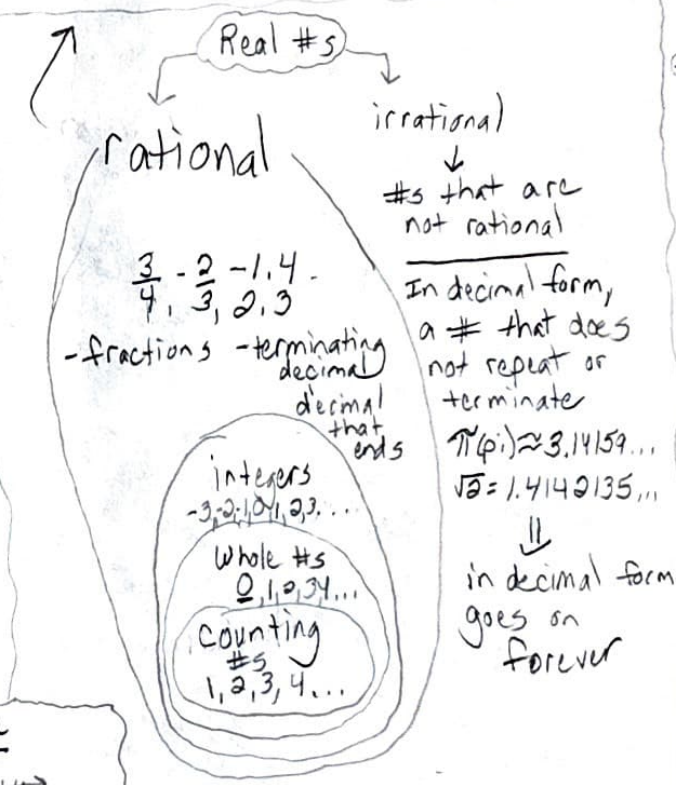 Real #s
rational
3/4, -2/3, -1.4
2.3
-fractions -terminating
decimal
decimal
that
ends
integers
-3,-2,-1,0,1,2,3...
Whole #s
0,1,2,3,4...
Counting
#s
1,2,3,4...
irrational
#s that are
not rational
In decimal form,
a # that does
not repeat or
terminate
π(pi)≈3.14159...
√2=1.4142135...
in decimal form
goes on
forever